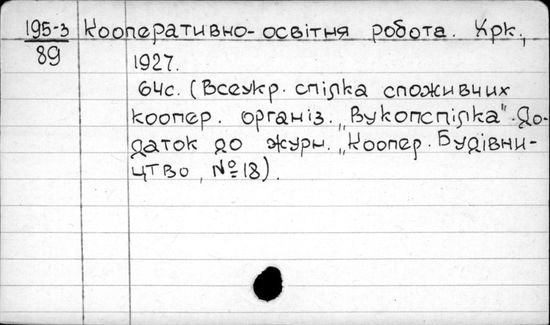 195-3 Кооперативно-освітня робота. Хрк.,
89
1927.
64с. (Всеукр. спілка споживчих
коопер. організ. „Вукопспілка". До-
даток до журн. „Коопер. Будівни-
цтво, №18).